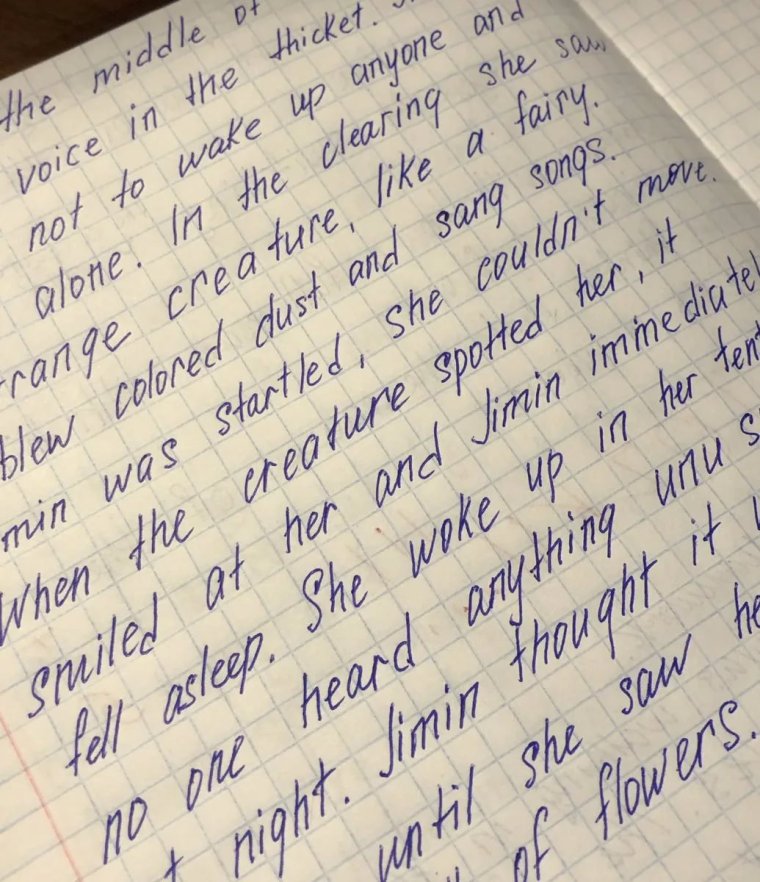 the middle of
voice in the thicket.
not to wake up anyone and
alone. In the clearing she saw
range creature, like a fairy.
blew colored dust and sang songs.
min was startled, she couldn't move.
When the creature spotted her, it
smiled at her and Jimin immediatel
fell asleep. She woke up in her tent
no one heard anything unu s
night. Jimin thought it
until she saw he
of flowers.